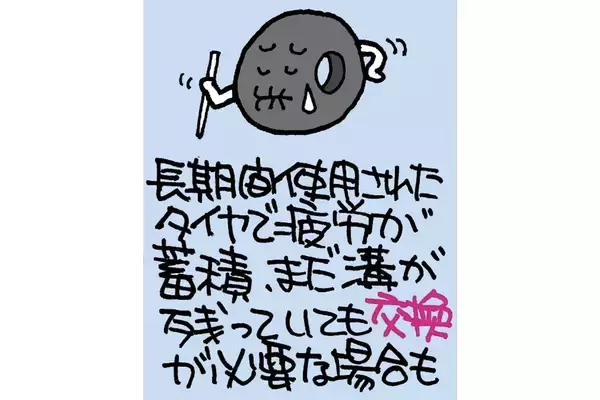 長期間使用された
タイヤで疲労が
蓄積、まだ溝が
残っていても交換
が必要な場合も